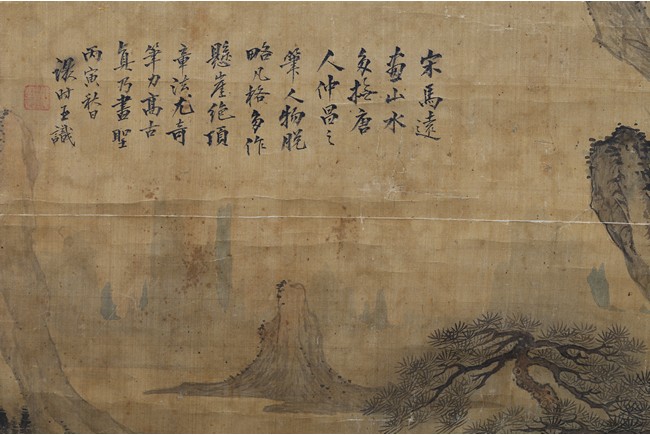 宋馬遠
畫山水
多撫唐
人仲昌之
筆人物脫
略凡格多作
懸崖絕頂
章法尤奇
筆力高古
真乃畫聖
丙寅秋日
時五識